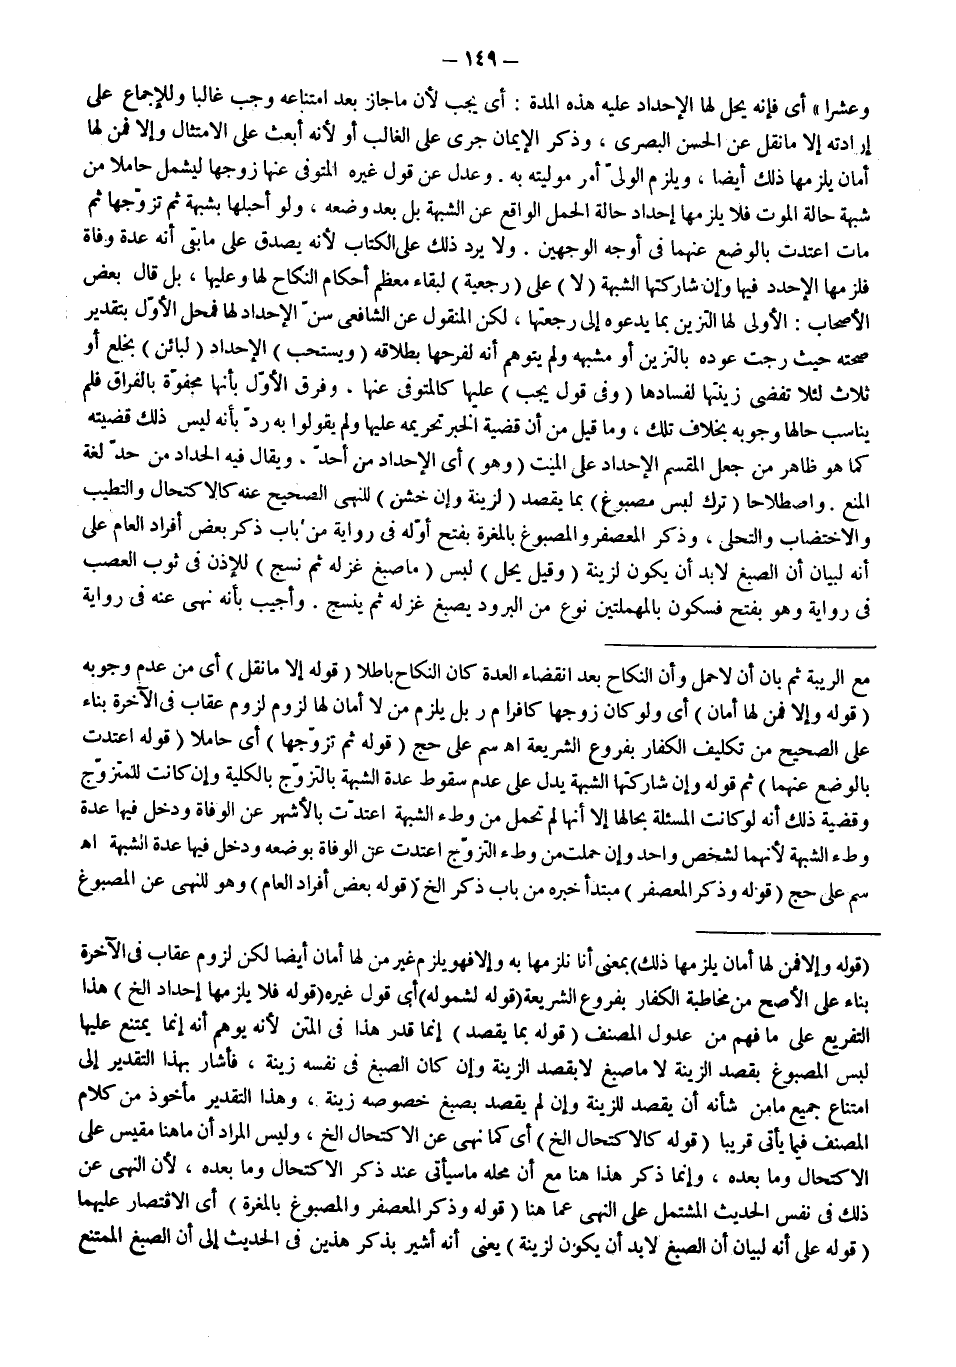 – ١٤٩ –
وعشرا» أى فإنه يحل لها الإحداد عليه هذه المدة : أى يجب لأن ماجاز بعد امتناعه وجب غالبا وللإجماع على
إرادته إلا مانقل عن الحسن البصرى ، وذكر الإيمان جرى على الغالب أو لأنه أبعث على الامتثال وإلا فمن لها
أمان يلزمها ذلك أيضا ، ويلزم الولىّ أمر موليته به . وعدل عن قول غيره المتوفى عنها زوجها ليشمل حاملا من
شبهة حالة الموت فلا يلزمها إحداد حالة الحمل الواقع عن الشبهة بل بعد وضعه ، ولو أحبلها بشبهة ثم تزوّجها ثم
مات اعتدت بالوضع عنهما فى أوجه الوجهين . ولا يرد ذلك على الكتاب لأنه يصدق على مابقى أنه عدة وفاة
فلزمها الإحدد فيها وإن شاركتها الشبهة ( لا ) على ( رجعية ) لبقاء معظم أحكام النكاح لها وعليها ، بل قال بعض
الأصحاب : الأولى لها التزين بما يدعوه إلى رجعتها ، لكن المنقول عن الشافعى سنّ الإحداد لها فمحل الأوّل بتقدير
صحته حيث رجت عوده بالتزين أو مشبهه ولم يتوهم أنه لفرحها بطلاقه ( ويستحب ) الإحداد ( لبائن ) بخلع أو
ثلاث لئلا تفضى زينتها لفسادها ( وفى قول يجب ) عليها كالمتوفى عنها . وفرق الأوّل بأنها مجفوّة بالفراق فلم
يناسب حالها وجوبه بخلاف تلك ، وما قيل من أن قضية الخبر تحريمه عليها ولم يقولوا به ردّ بأنه ليس ذلك قضيته
كما هو ظاهر من جعل المقسم الإحداد على الميت ( وهو ) أى الإحداد من أحدّ . ويقال فيه الحداد من حدّ لغة
المنع . واصطلاحا ( ترك لبس مصبوغ ) بما يقصد ( لزينة وإن خشن ) للنهى الصحيح عنه كالاكتحال والتطيب
والاختضاب والتحلى ، وذكر المعصفر والمصبوغ بالمغرة بفتح أوّله فى رواية من باب ذكر بعض أفراد العام على
أنه لبيان أن الصبغ لابد أن يكون لزينة ( وقيل يحل ) لبس ( ماصبغ غزله ثم نسج ) للإذن فى ثوب العصب
فى رواية وهو بفتح فسكون بالمهملتين نوع من البرود يصبغ غزله ثم ينسج . وأجيب بأنه نهى عنه فى رواية
مع الريبة ثم بان أن لاحمل وأن النكاح بعد انقضاء العدة كان النكاح باطلا ( قوله إلا مانقل ) أى من عدم وجوبه
( قوله وإلا فمن لها أمان ) أى ولو كان زوجها كافرا م ر بل يلزم من لا أمان لها لزوم لزوم عقاب فى الآخرة بناء
على الصحيح من تكليف الكفار بفروع الشريعة اه سم على حج ( قوله ثم تزوّجها ) أى حاملا ( قوله اعتدت
بالوضع عنهما ) ثم قوله وإن شاركتها الشبهة يدل على عدم سقوط عدة الشبهة بالتزوّج بالكلية وإن كانت للمتزوّج
وقضية ذلك أنه لو كانت المسئلة بحالها إلا أنها لم تحمل من وطء الشبهة اعتدّت بالأشهر عن الوفاة ودخل فيها عدة
وطء الشبهة لأنهما لشخص واحد وإن حملت من وطء التزوّج اعتدت عن الوفاة بوضعه ودخل فيها عدة الشبهة اه
سم على حج ( قوله وذكر المعصفر ) مبتدأ خبره من باب ذكر الخ ( قوله بعض أفراد العام ) وهو للنهى عن المصبوغ
(قوله وإلا فمن لها أمان يلزمها ذلك) بمعنى أنا نلزمها به وإلا فهو يلزم غير من لها أمان أيضا لكن لزوم عقاب فى الآخرة
بناء على الأصح من مخاطبة الكفار بفروع الشريعة (قوله لشموله) أى قول غيره (قوله فلا يلزمها إحداد الخ ) هذا
التفريع على ما فهم من عدول المصنف ( قوله بما يقصد ) إنما قدر هذا فى المتن لأنه يوهم أنه إنما يمتنع عليها
لبس المصبوغ بقصد الزينة لا ماصبغ لابقصد الزينة وإن كان الصبغ فى نفسه زينة ، فأشار بهذا التقدير إلى
امتناع جميع مامن شأنه أن يقصد للزينة وإن لم يقصد بصبغ خصوصه زينة ، وهذا التقدير مأخوذ من كلام
المصنف فيما يأتى قريبا ( قوله كالاكتحال الخ ) أى كما نهى عن الاكتحال الخ ، وليس المراد أن ماهنا مقيس على
الاكتحال وما بعده ، وإنما ذكر هذا هنا مع أن محله ماسيأتى عند ذكر الاكتحال وما بعده ، لأن النهى عن
ذلك فى نفس الحديث المشتمل على النهى عما هنا ( قوله وذكر المعصفر والمصبوغ بالمغرة ) أى الاقتصار عليهما
( قوله على أنه لبيان أن الصبغ لابد أن يكون لزينة ) يعنى أنه أشير بذكر هذين فى الحديث إلى أن الصبغ الممتنع